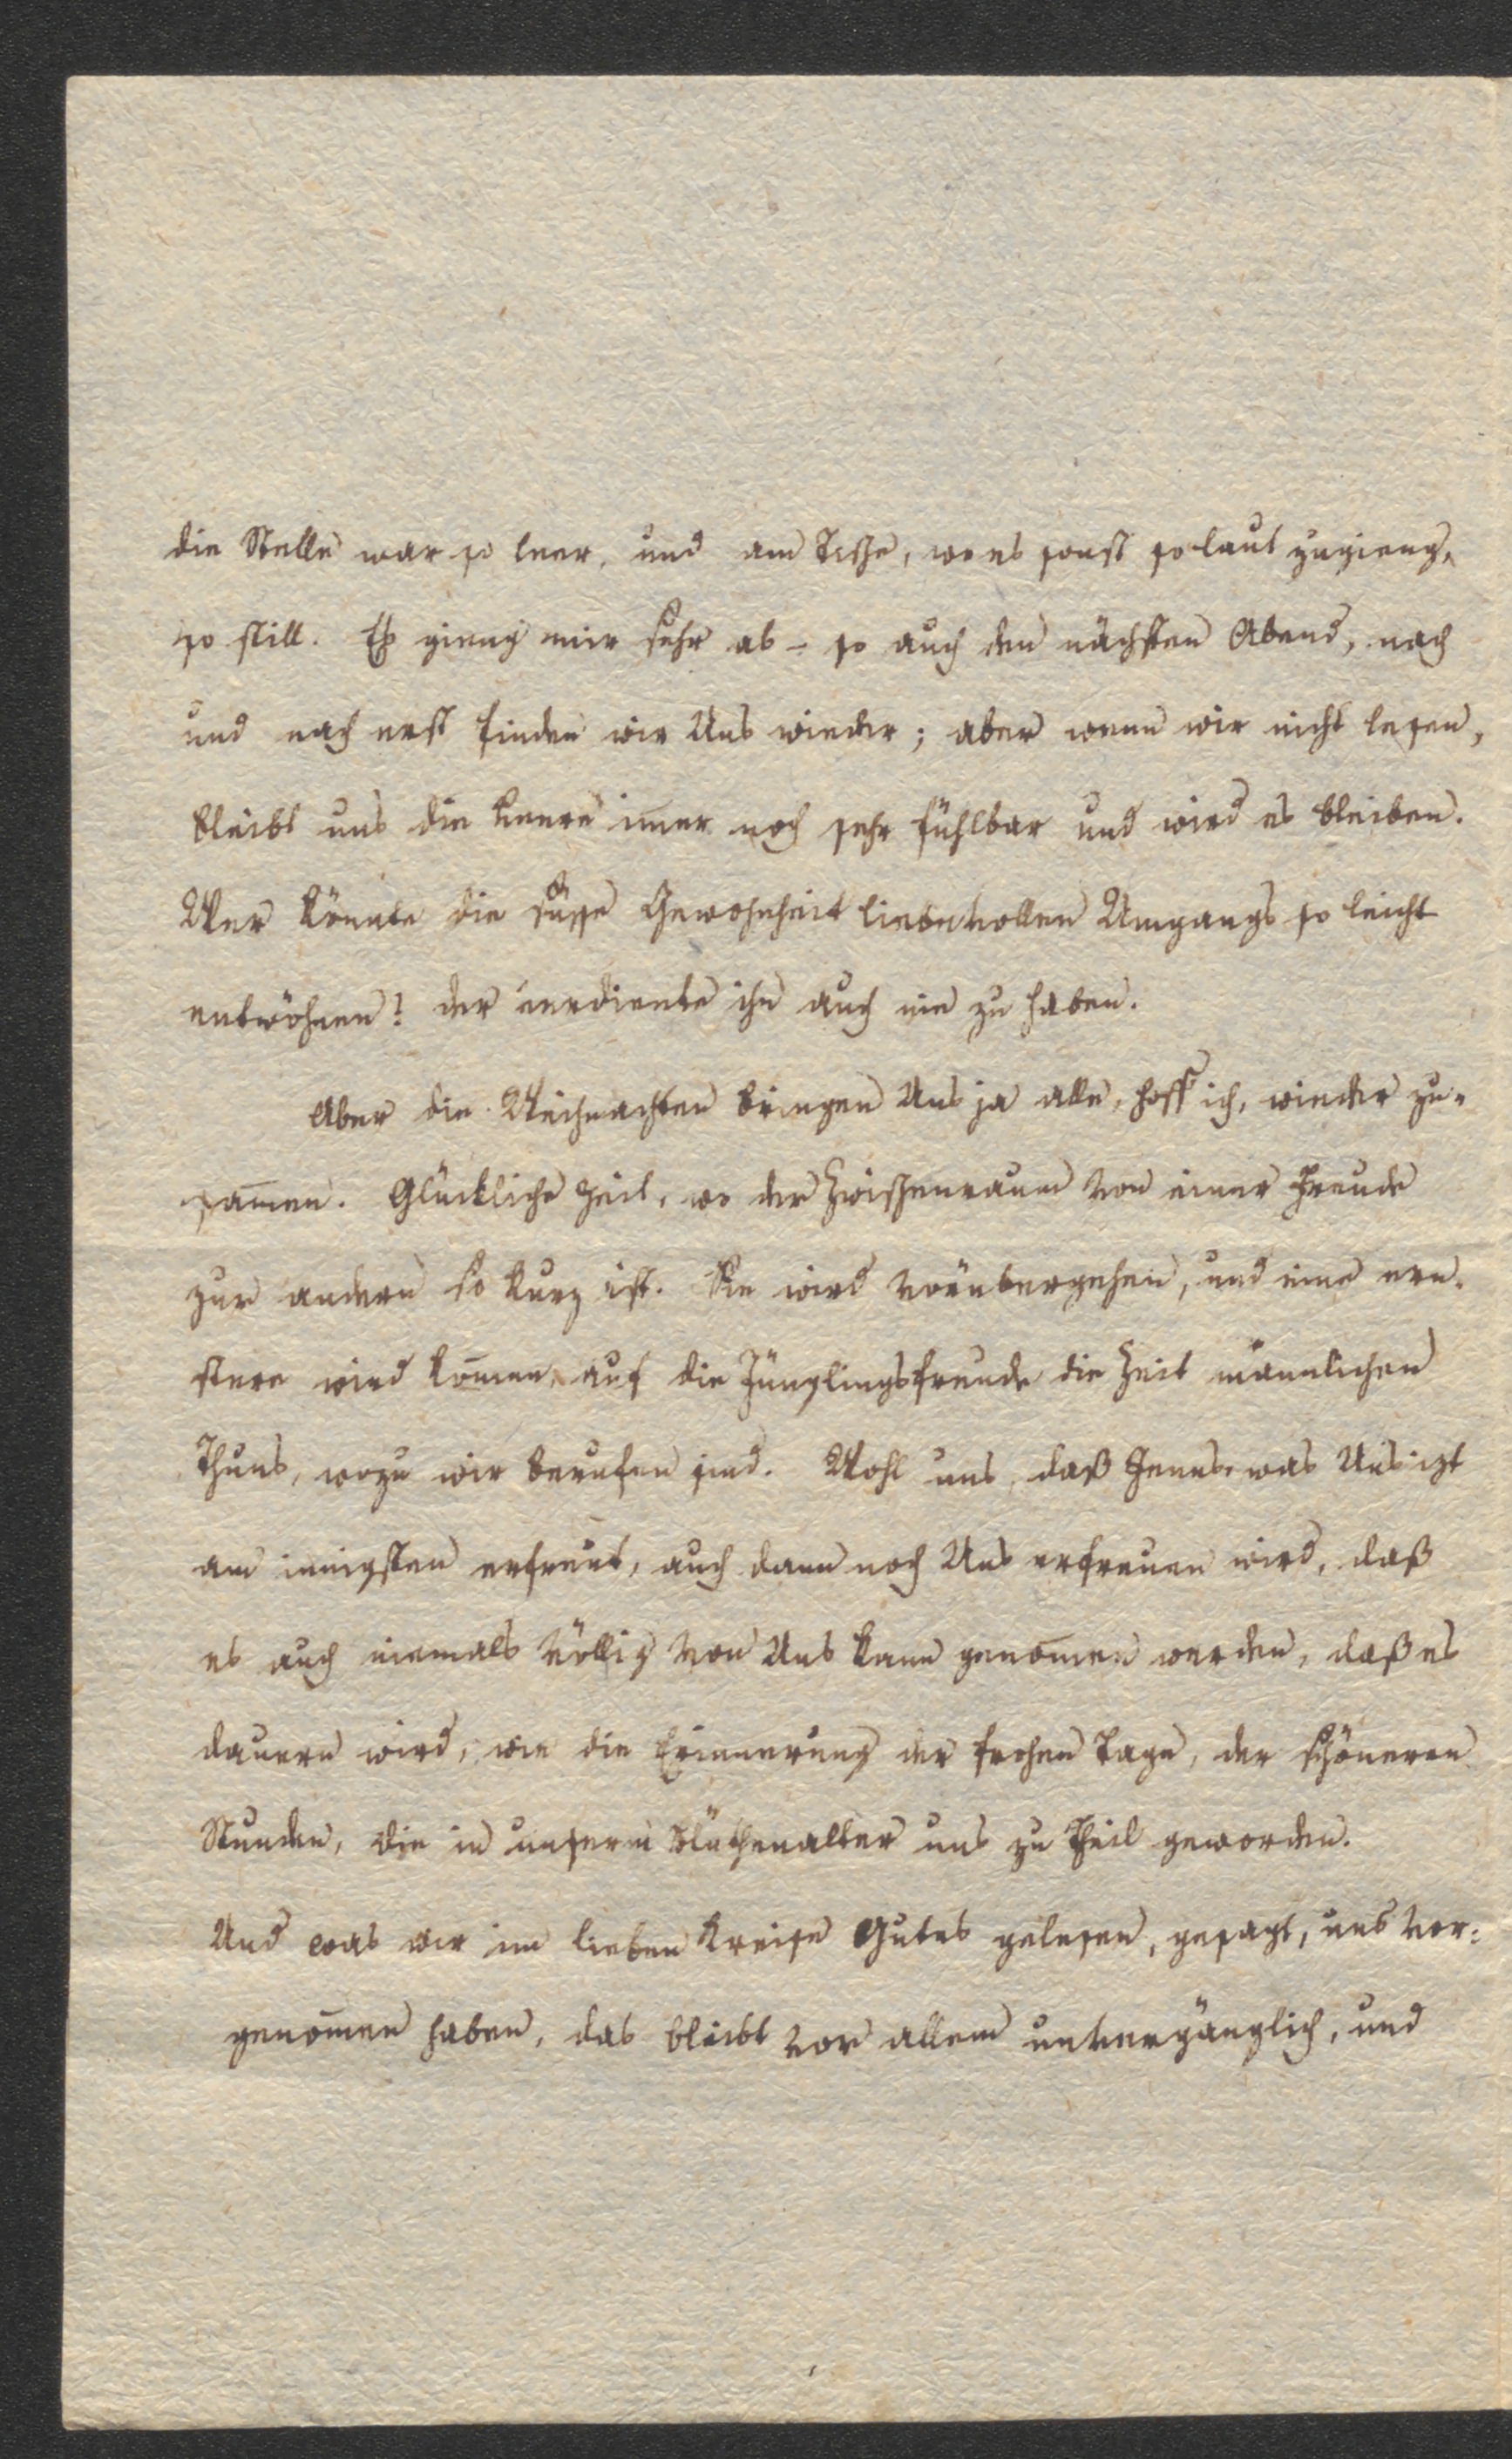 die Stelle war so leer, und am Tische, wo es sonst so laut zugieng,
so still. Es gieng mir sehr ab – so auch den nächsten Abend, nach
und nach erst finden wir Uns wieder; aber wenn wir nicht lesen,
bleibt uns die Leere im̄er noch sehr fühlbar und wird es bleiben.
Wer könnte die süsse Gewohnheit liebevollen Umgangs so leicht
entwöhnen? der verdiente ihn auch nie zu haben.
Aber die Weihnachten bringen Uns ja alle, hoff ich, wieder zu-
sam̄en. Glückliche Zeit, wo der Zwischenraum von einer Freude
zur andern so kurz ist. Sie wird vorübergehen, und eine ern-
stere wird kom̄en, auf die Jünglingsfreude die Zeit männlichen
Thuns, wozu wir berufen sind. Wohl uns, daß Jenes, was Uns izt
am innigsten erfreut, auch dann noch Uns erfreuen wird, daß
es auch niemals völlig von Uns kann genom̄en werden, daß es
dauern wird, wie die Erinnerung der frohen Tage, der schöneren
Stunden, die in unserm Blüthenalter uns zu Theil geworden.
Und was wir im lieben Kreise Gutes gelesen, gesagt, uns vor-
genom̄en haben, das bleibt vor allem unvergänglich, und